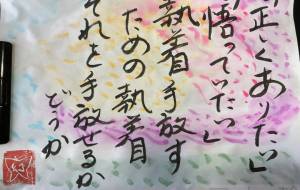 「正しくありたい」
「悟っていたい」
執着手放す
ための執着
それを手放せるか
どうか